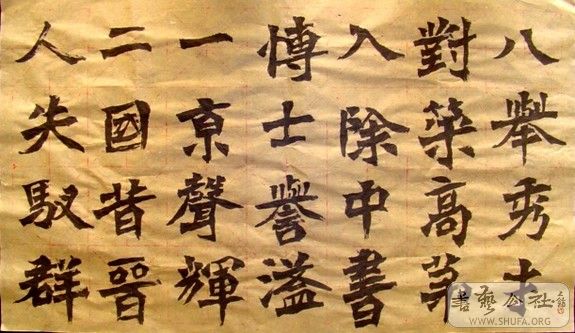 八舉秀才
對策高第
入除中書
博士譽溢
一京聲輝
二國昔晉
人失馭群
書藝公社
WWW.SHUFA.ORG